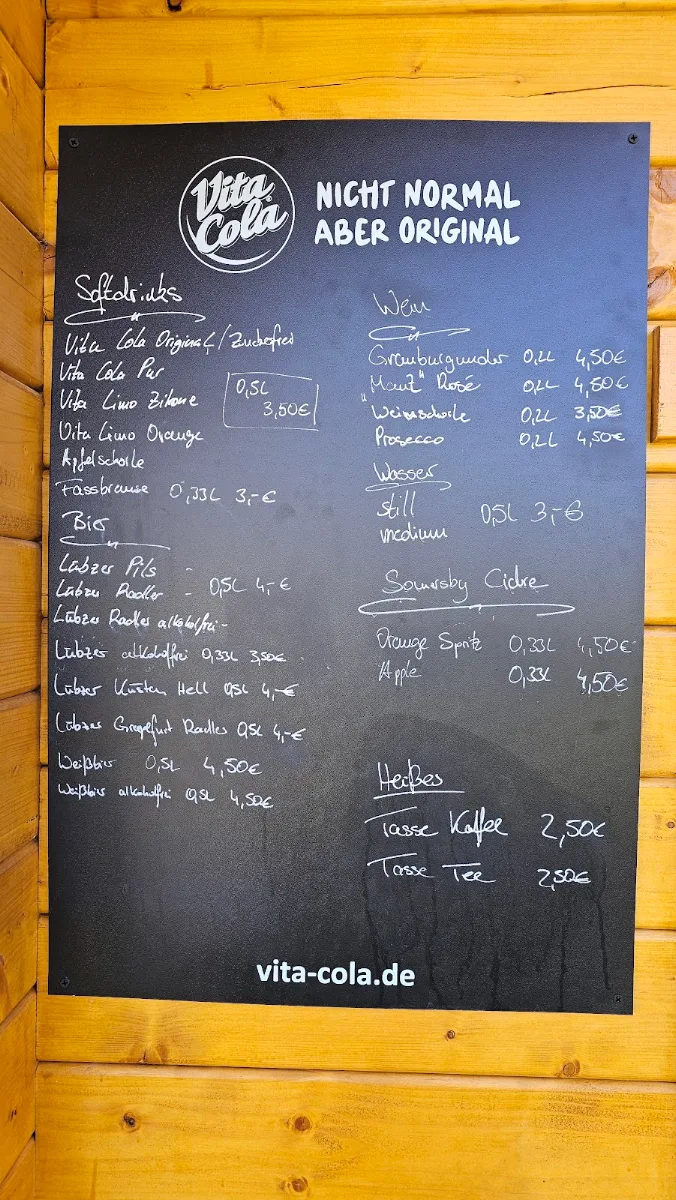 Vita Cola
NICHT NORMAL
ABER ORIGINAL
Softdrinks
Vita Cola Original / Zuckerfrei
Vita Cola Pur
Vita Limo Zitrone
0,5L
3,50€
Vita Limo Orange
Apfelschorle
Fassbrause 0,33L 3,-€
Bier
Lübzer Pils -
Lübzer Radler - 0,5L 4,-€
Lübzer Radler alkoholfrei -
Lübzer alkoholfrei 0,33L 3,50€
Lübzer Küsten Hell 0,5L 4,-€
Lübzer Grapefruit Radler 0,5L 4,-€
Weißbier 0,5L 4,50€
Weißbier alkoholfrei 0,5L 4,50€
Wein
Grauburgunder 0,2L 4,50€
Rosé 0,2L 4,50€
Weinschorle 0,2L 3,50€
Prosecco 0,2L 4,50€
Wasser
still
0,5L 3,-€
medium
Somersby Cidre
Orange Spritz 0,33L 4,50€
Apple 0,33L 4,50€
Heißes
Tasse Kaffee 2,50€
Tasse Tee 2,50€
vita-cola.de